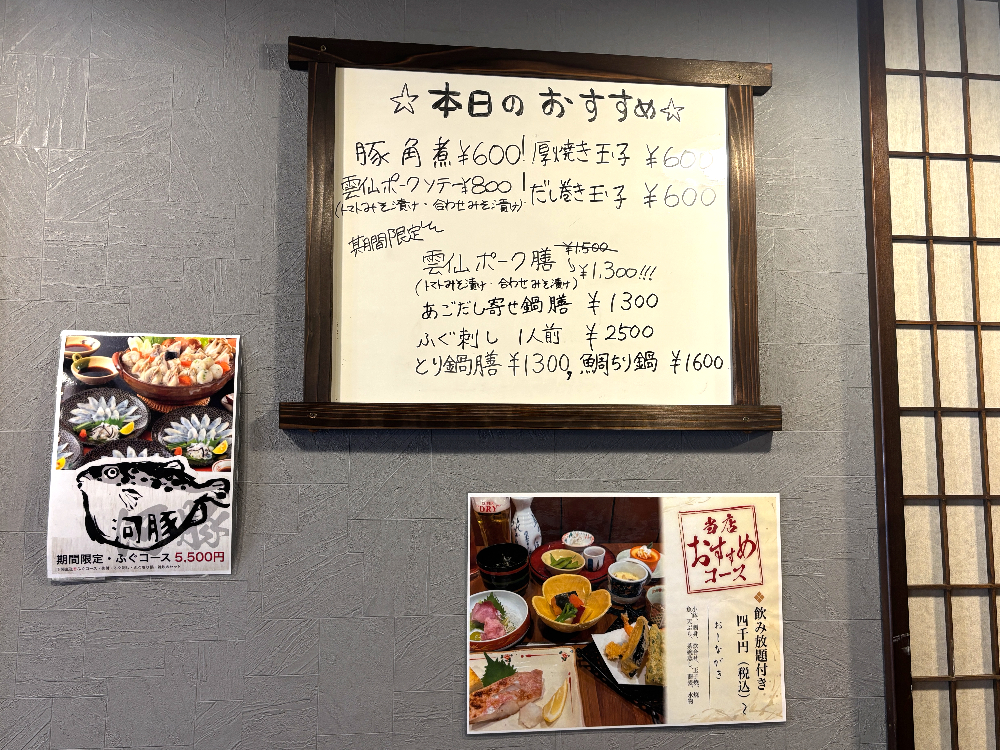 ☆本日のおすすめ☆
豚角煮¥600! 厚焼き玉子 ¥600
雲仙ポークソテー¥800! だし巻き玉子 ¥600
(トマトみそ漬け・合わせみそ漬け)
期間限定
雲仙ポーク膳 ¥1,500
(トマトみそ漬け・合わせみそ漬け) ¥1,300!!!
あごだし寄せ鍋膳 ¥1300
ふぐ刺し 1人前 ¥2500
とり鍋膳 ¥1300, 鯛ちり鍋 ¥1600
河豚
期間限定・ふぐコース 5,500円
DRY
当店
おすすめ
コース
飲み放題付き
四千円(税込)〜
おしながき